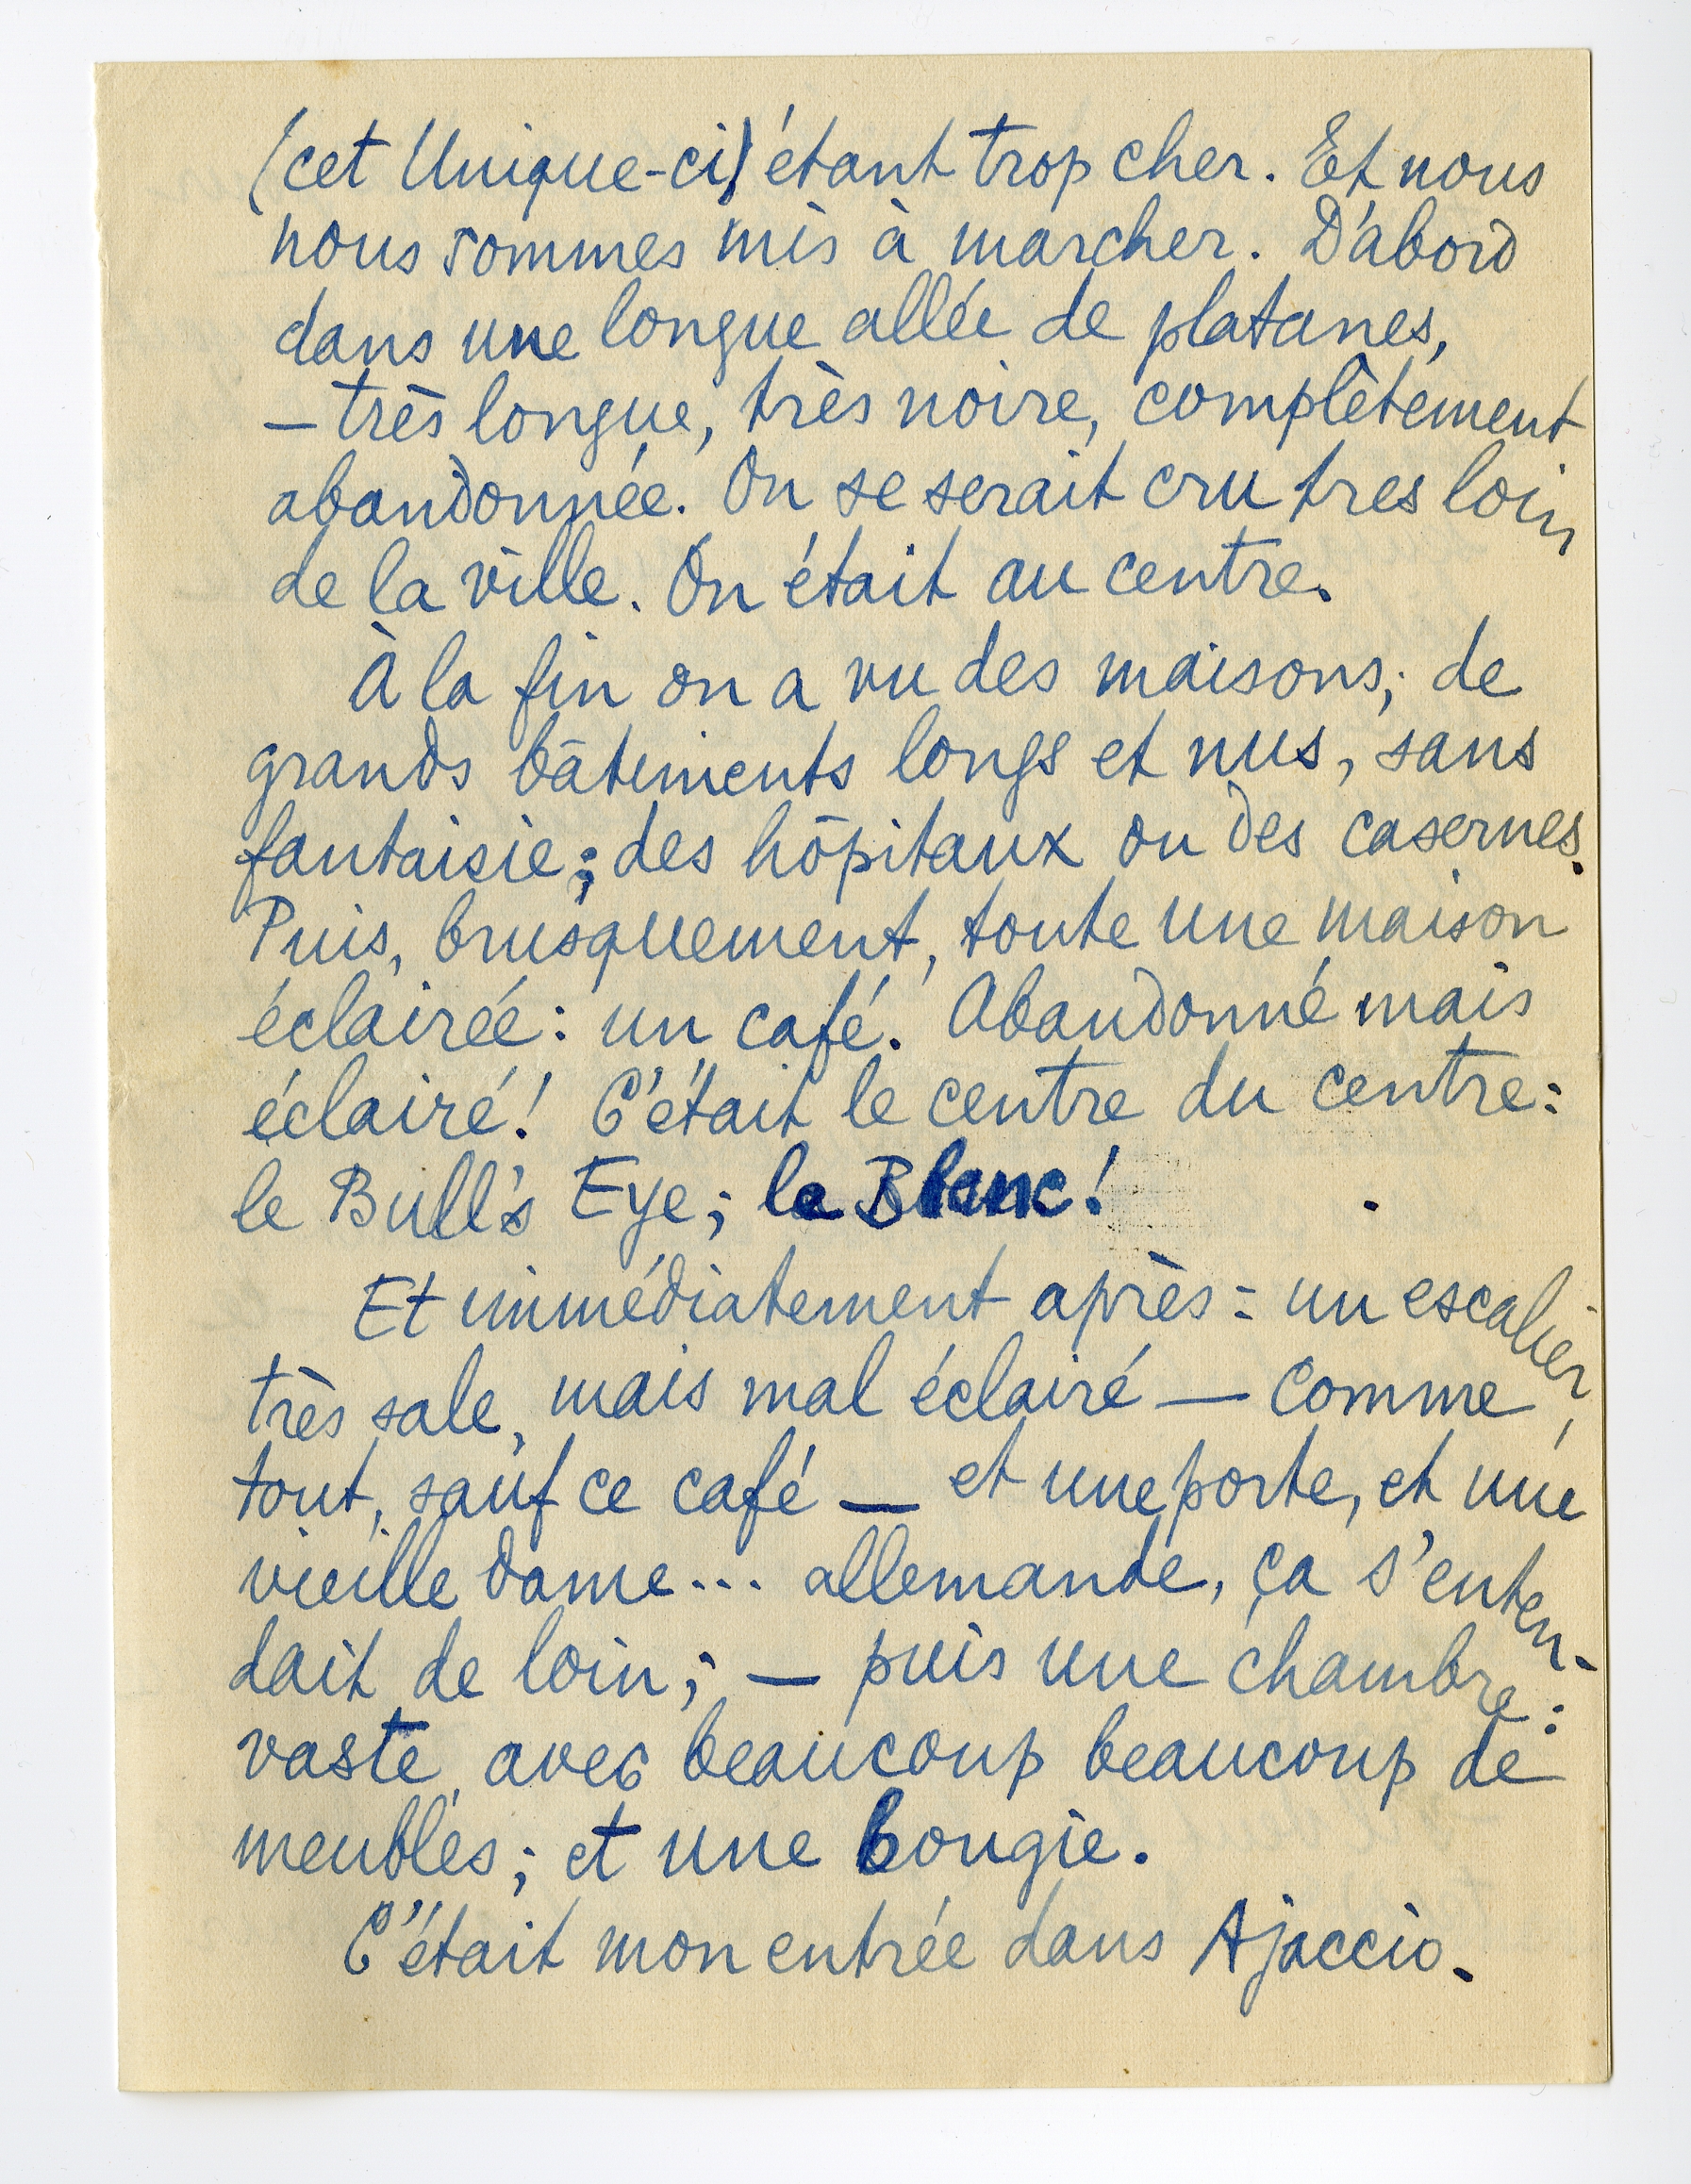 (cet Unique-ci) étant trop cher. Et nous
nous sommes mis à marcher. D'abord
dans une longue allée de platanes,
— très longue, très noire, complètement
abandonnée. On se serait cru tres loin
de la ville. On était au centre.
À la fin on a vu des maisons; de
grands bâtiments longs et nus, sans
fantaisie; des hôpitaux ou des casernes.
Puis, brusquement, toute une maison
éclairée: un café. Abandonné mais
éclairé! C'était le centre du centre:
le Bull's Eye; le Blanc!
Et immédiatement après: un escalier,
très sale, mais mal éclairé — comme
tout, sauf ce café — et une porte, et une
vieille dame... allemande, ça s'enten-
dait de loin; — puis une chambre:
vaste, avec beaucoup beaucoup de
meubles; et une bougie.
C'était mon entrée dans Ajaccio.